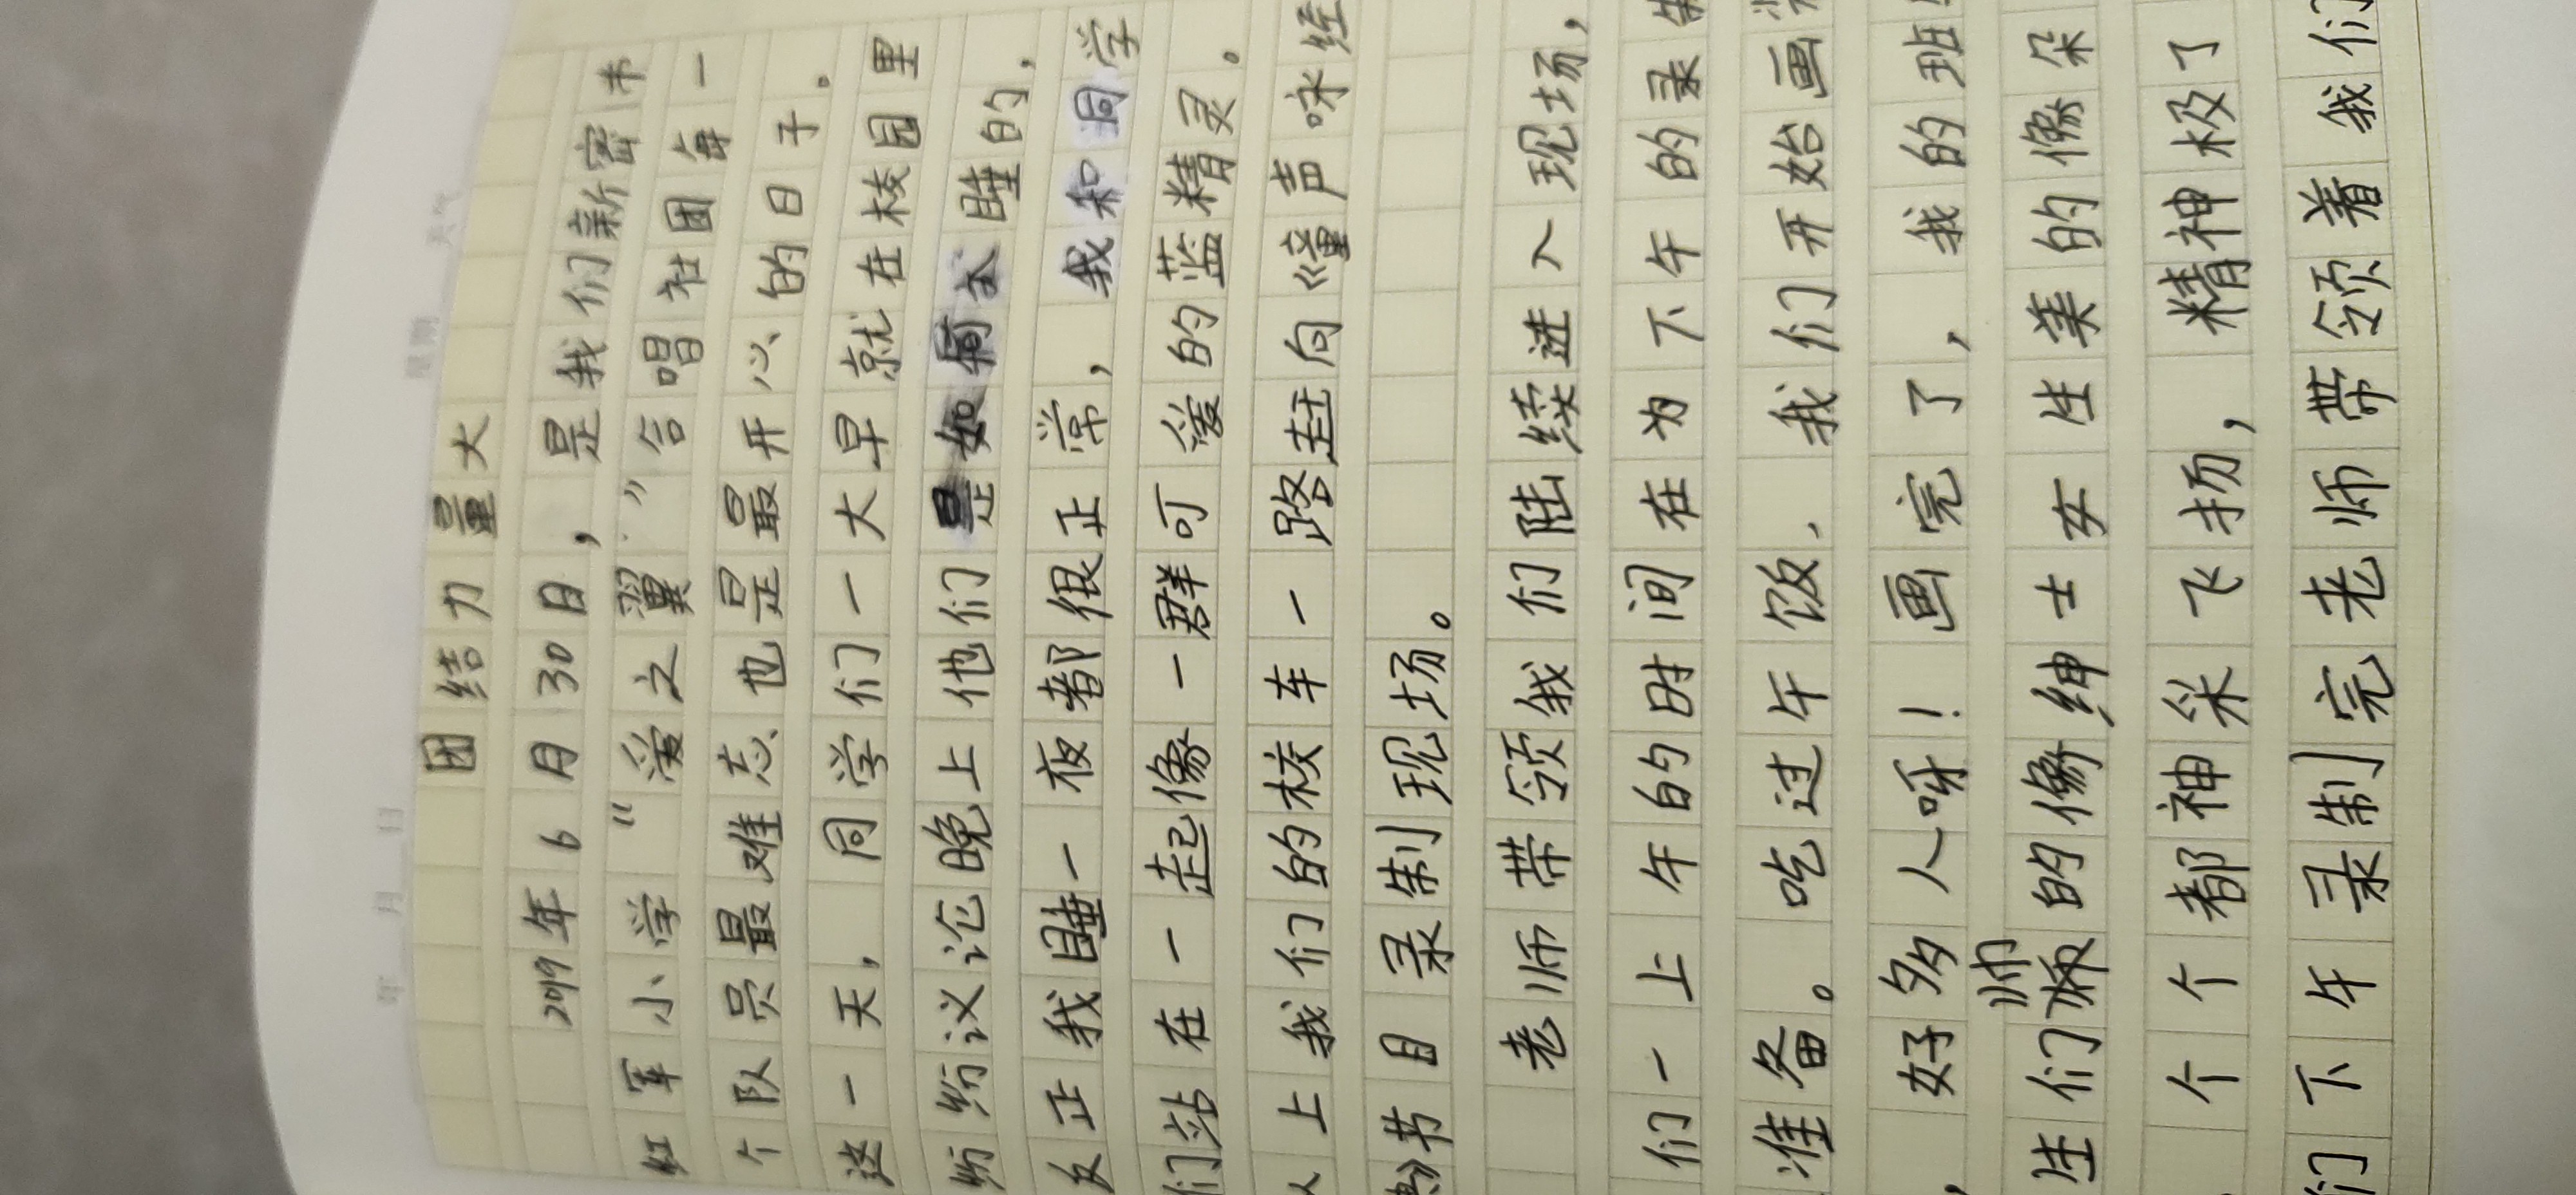 年 月 日 星期 天气
团结力量大
2019年6月30日，是我们新密市
红军小学“爱之翼”合唱社团每一
个队员最难忘也是最开心的日子。
这一天，同学们一大早就在校园里
纷纷议论晚上他们是如何睡的，
反正我睡一夜都很正常，我和同学
们站在一起像一群可爱的蓝精灵。
上我们的校车一路赶向《童声咏经
典》节目录制现场。
老师带领我们陆续进入现场，
们一上午的时间在为下午的录制
准备。吃过午饭，我们开始画
好多人呀！画完了，我的班
生们师的像绅士女生美的像朵
个个都神采飞扬，精神极了
们下午录制完老师带领着我们